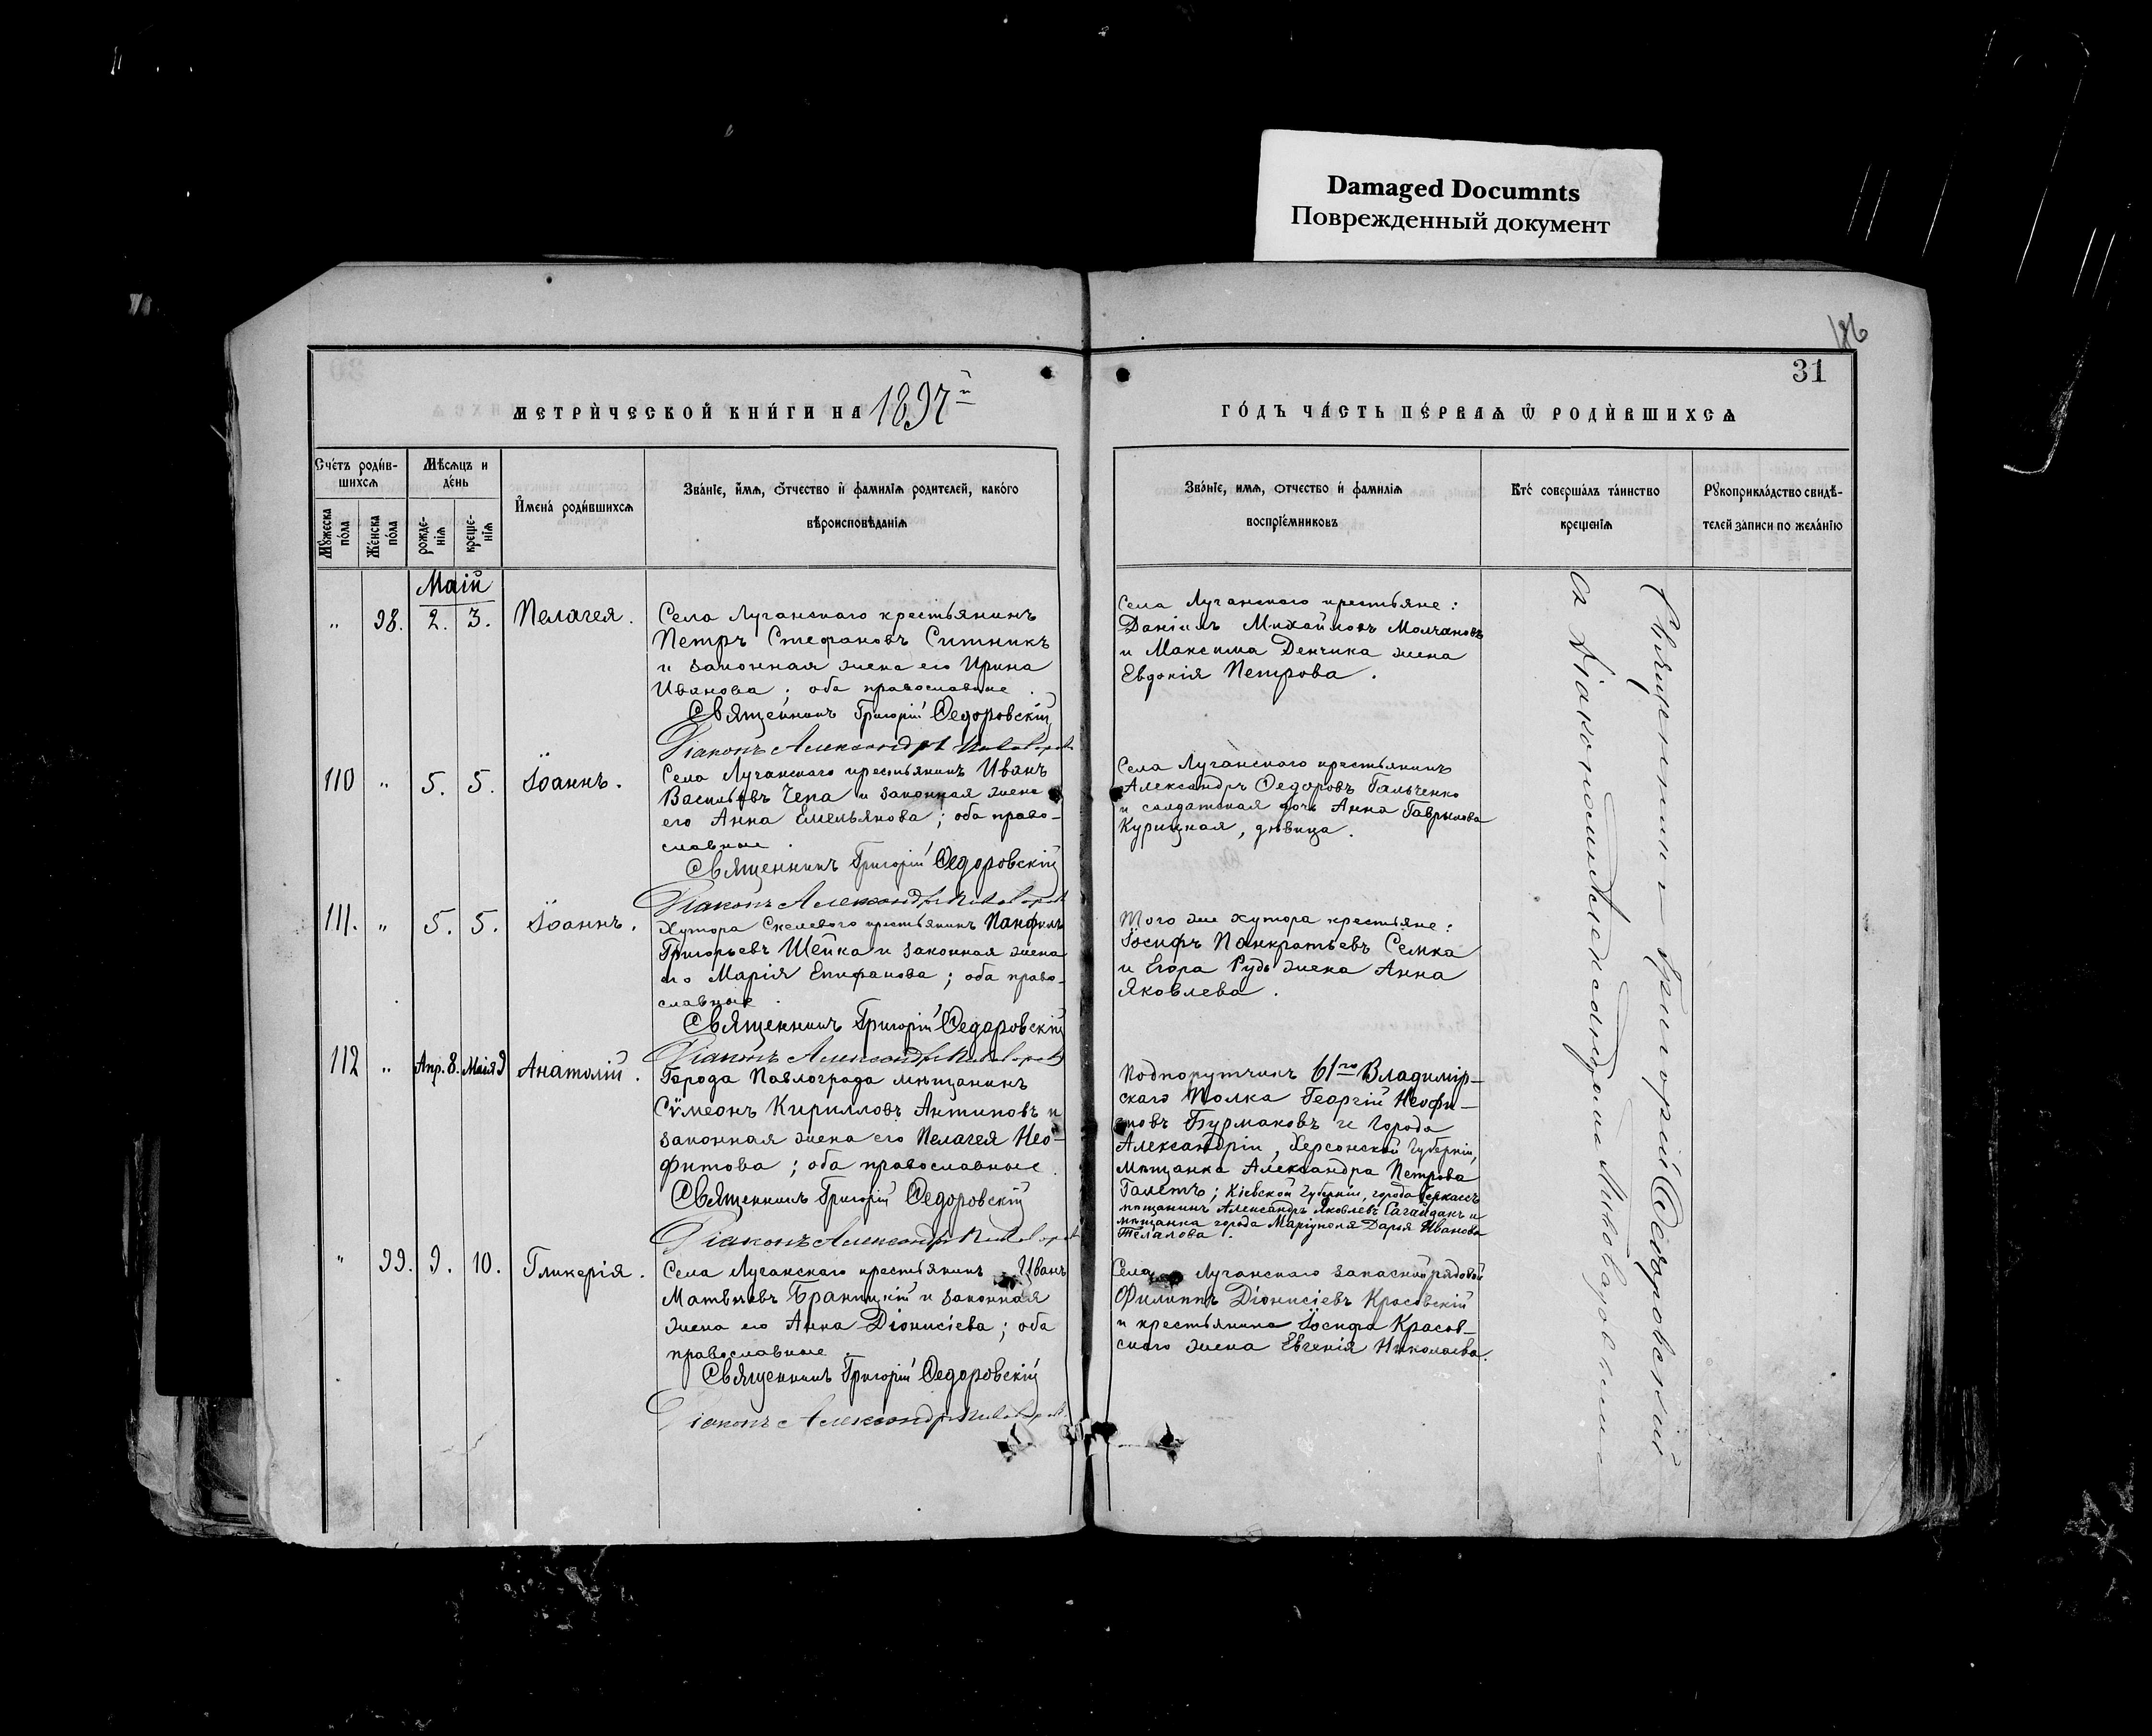 Damaged Documnts
Поврежденный документ
186
31
МЕТРИ́ЧЕСКОЙ КНИ́ГИ НА 1897й
ГО́ДЪ ЧА́СТЬ ПЕ́РВАѦ Ѡ҃ РОДИ́ВШИХСѦ
Сче́тъ роди́в-
шихсѧ
Мѣ́сѧцъ и
де́нь
Му́жеска по́ла
Же́нска по́ла
рожде-
нїѧ
креще-
нїѧ
И҆мена̀ роди́вшихсѧ
Зва́нїе, и҆́мѧ, ѻ҆́тчество и҆ фами́лїѧ роди́телей, како́го
вѣроисповѣ́данїѧ
Зва́нїе, имѧ, ѻтчество и҆ фами́лїѧ
воспрїе́мниковъ
Кто̀ соверша́лъ та́инство
креще́нїѧ
Рꙋкоприкла́дство свидѣ́-
телей за́писи по жела́нїю
Маій
" 98. 2. 3. Пелагея.
Села Луганскаго крестьянинъ
Петръ Стефановъ Ситникъ
и законная жена его Ирина
Иванова; оба православные.
Священникъ Григорій Ѳедоровскій
Діаконъ Александръ
Села Луганскаго крестьяне:
Даніилъ Михайловъ Молчановъ
и Максима Денчика жена
Евдокія Петрова.
110 " 5. 5. Іоаннъ.
Села Луганскаго крестьянинъ Иванъ
Васильевъ Чепа и законная жена
его Анна Емельянова; оба право-
славные.
Священникъ Григорій Ѳедоровскій
Діаконъ Александръ
Села Луганскаго крестьянинъ
Александръ Ѳедоровъ Гальченко
и солдатская дочь Анна Гаврилова
Курицкая, дѣвица.
111. " 5. 5. Іоаннъ.
Хутора Скелеваго крестьянинъ Панфилъ
Григорьевъ Шейка и законная жена
его Марія Епифанова; оба право-
славные.
Священникъ Григорій Ѳедоровскій
Діаконъ Александръ
Того же хутора крестьяне:
Іосифъ Панкратьевъ Семка
и Егора Рудь жена Анна
Яковлева.
112 " Апр. 8. Маія 9 Анатолій.
Города Павлограда мѣщанинъ
Сѵмеонъ Кирилловъ Антиповъ и
законная жена его Пелагея Нео-
фитова; оба православные.
Священникъ Григорій Ѳедоровскій
Діаконъ Александръ
Подпоручикъ 61го Владимір-
скаго Полка Георгій Неофи-
товъ Бурмаковъ и города
Александріи, Херсонской губерніи,
мѣщанка Александра Петрова
Галетъ; Кіевской губерніи, города Черкассъ
мѣщанинъ Александръ Яковлевъ Сагайдакъ и
мѣщанка города Маріуполя Дарья Иванова
Телалова.
" 99. 9. 10. Гликерія.
Села Луганскаго крестьянинъ Иванъ
Матвѣевъ Браницкій и законная
жена его Анна Діонисіева; оба
православные.
Священникъ Григорій Ѳедоровскій
Діаконъ Александръ
Села Луганскаго запасный рядовой
Филиппъ Діонисіевъ Красовскій
и крестьянина Іосифа Красов-
скаго жена Евгенія Николаева.
Священникъ Григорій Ѳедоровскій
съ діакономъ Александромъ